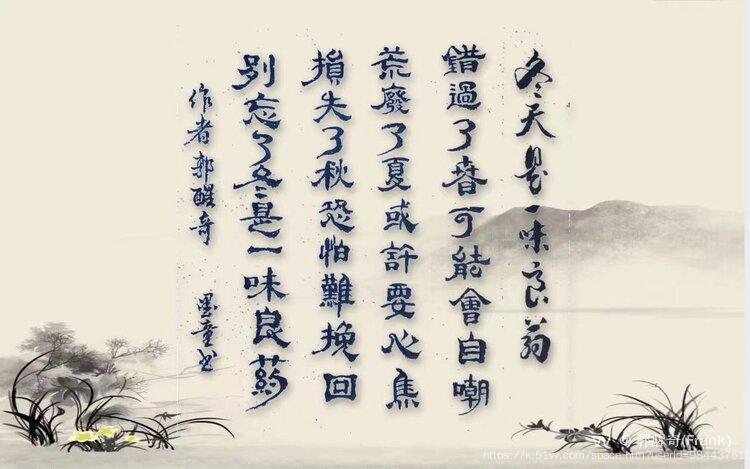 冬天是一味良药
錯過了春可能會自嘲
荒廢了夏或許要心焦
損失了秋恐怕難挽回
别忘了冬是一味良葯
作者郭醒奇 墨童书
VV @ 郭醒奇(Frank)
https://k.51vv.com/space.htm?userid=98443751